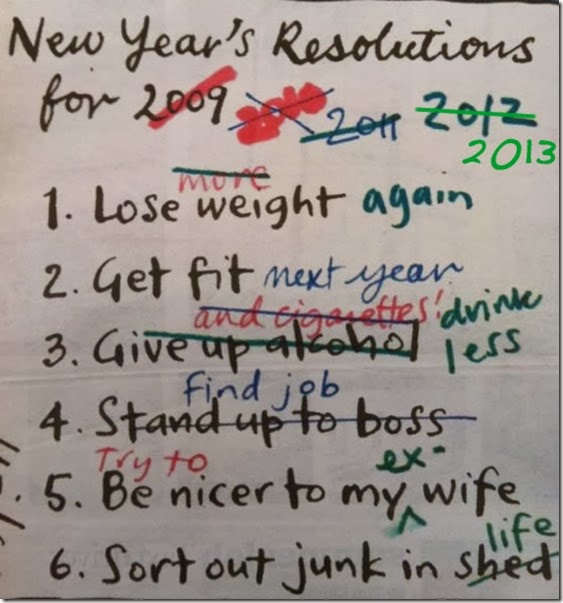 New Year's Resolutions
for 2009 2011 2012
2013
more
1. Lose weight again
2. Get fit next year
and cigarettes! drink
3. Give up alcohol less
find job
4. Stand up to boss
Try to ex-
5. Be nicer to my wife
life
6. Sort out junk in shed